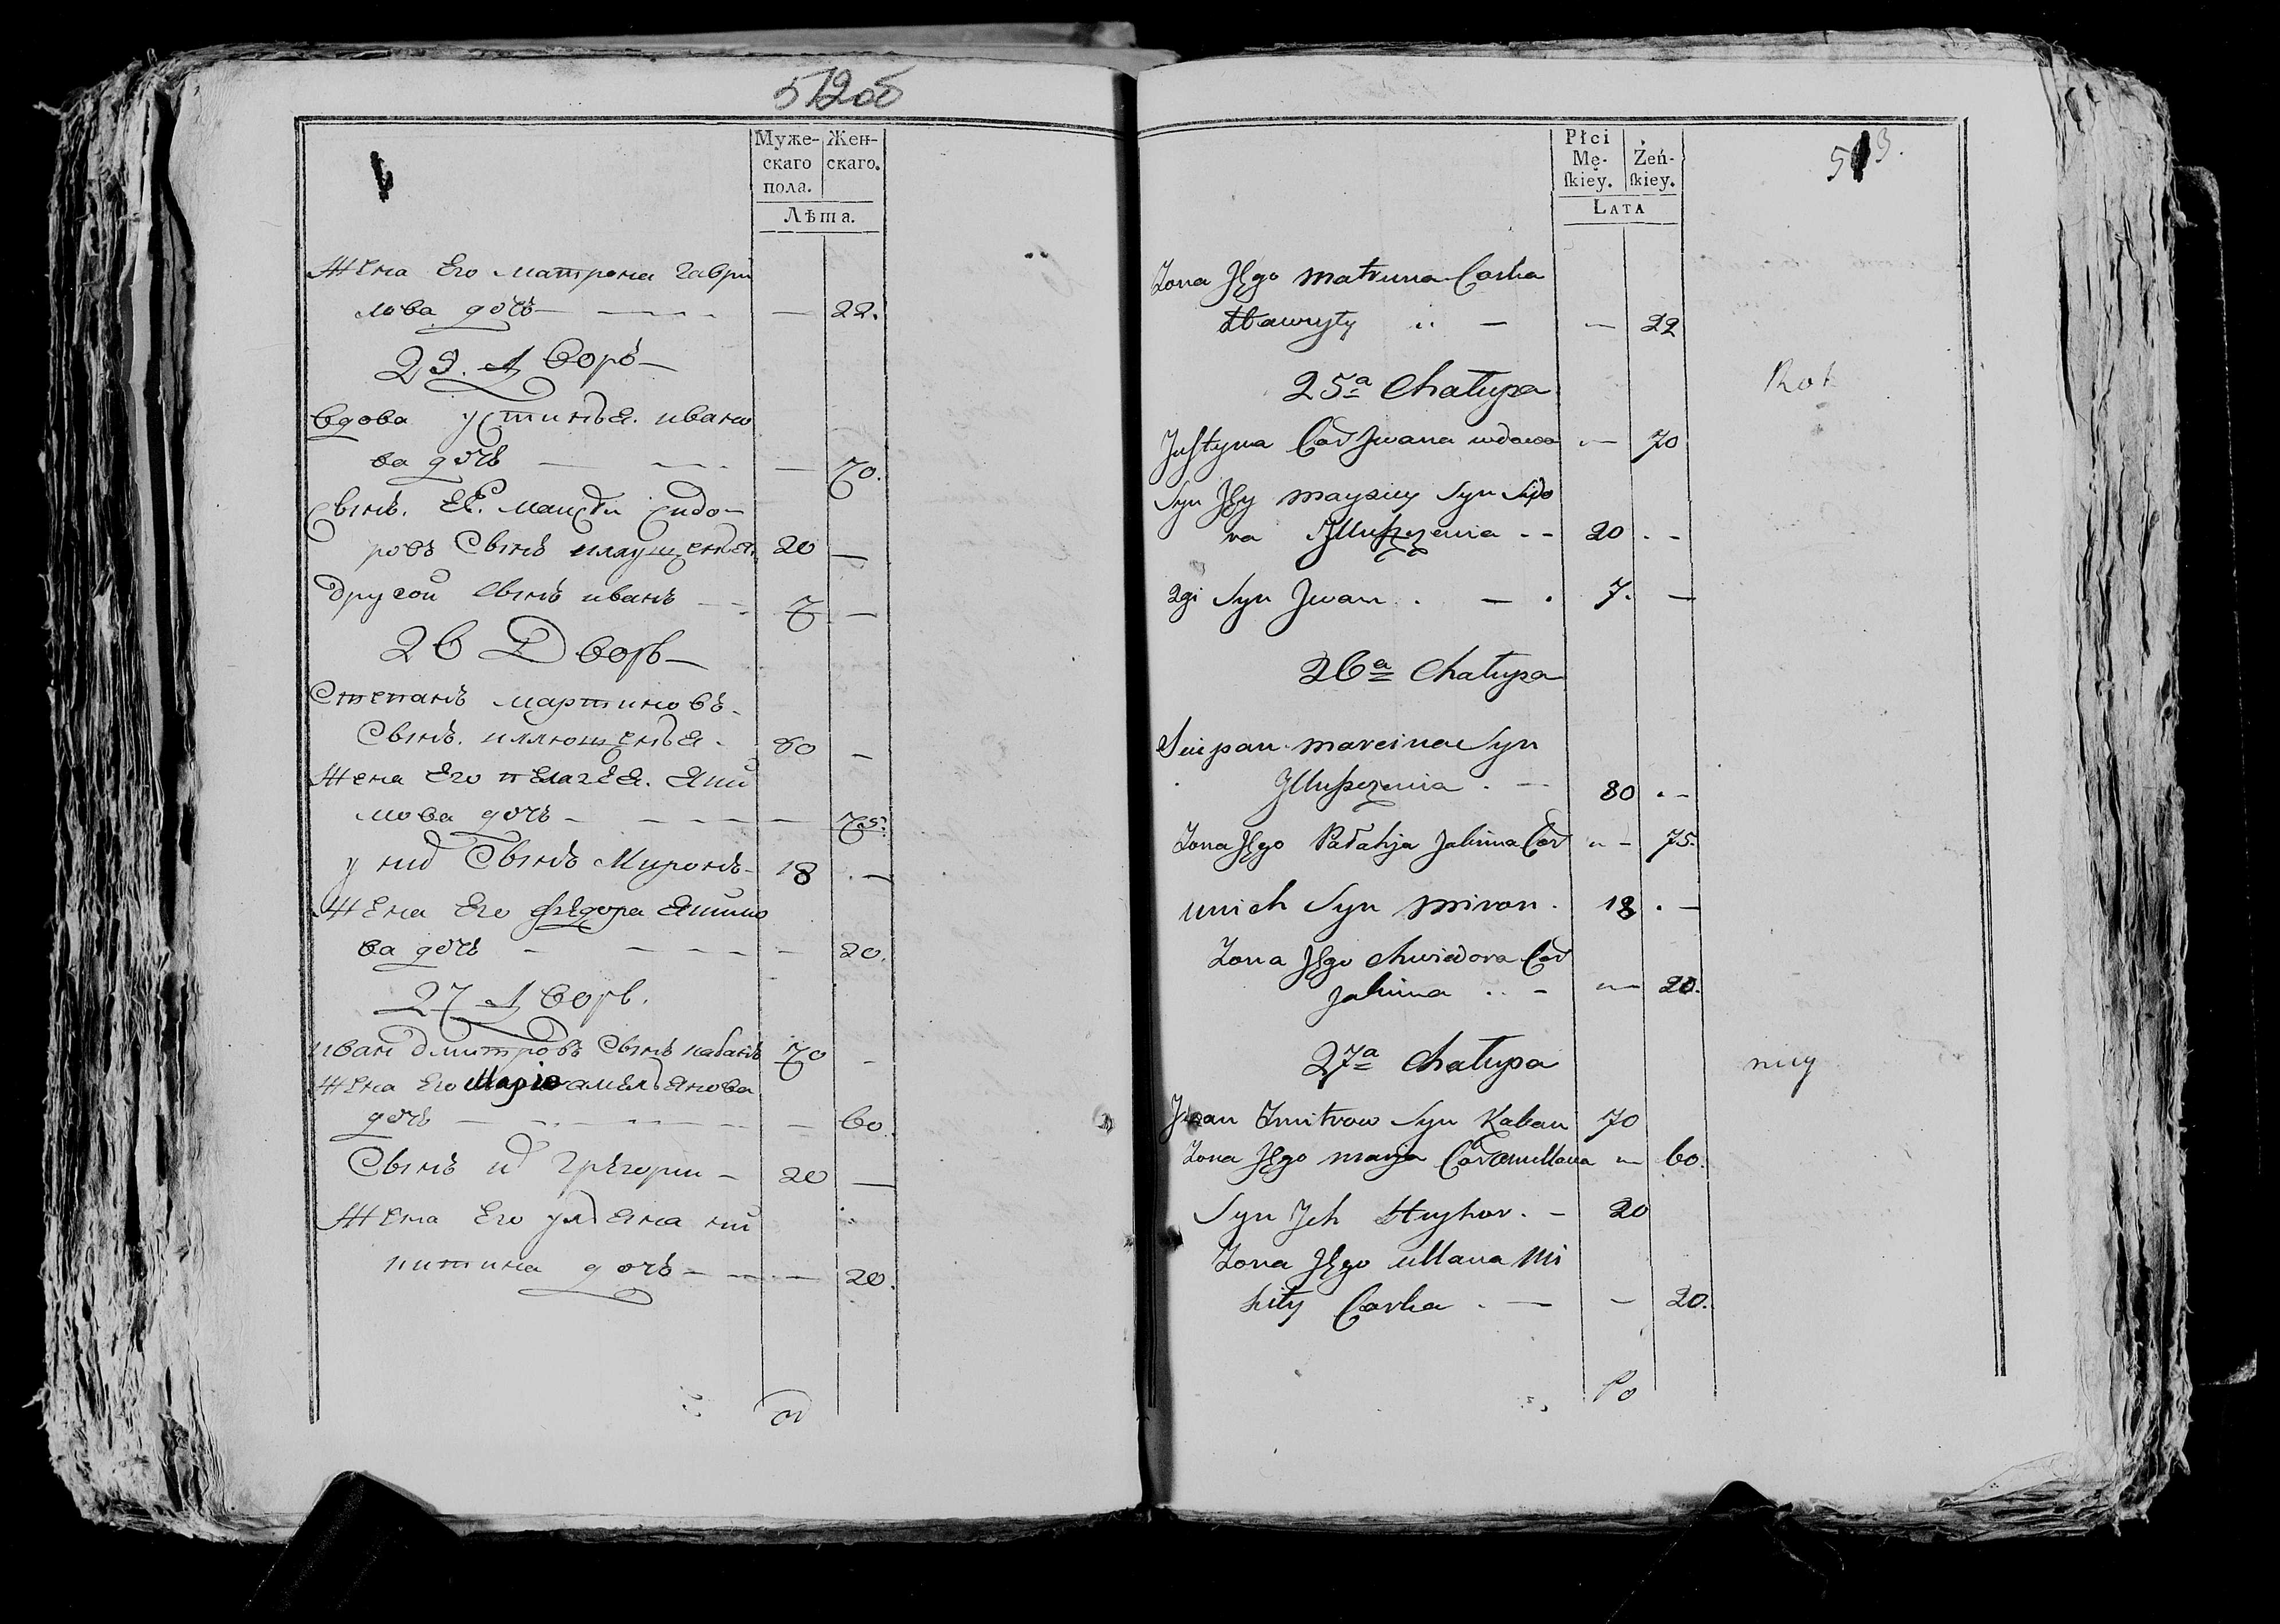 512 об
Муже- Жен-
скаго скаго.
пола.
Лѣта.
Жена Его матрона гаври
лова дочь — — — 22.
25. Дворъ —
вдова устинья. ивано
ва дочь — — — 70.
Сынъ. ЕЕ. Сидо-
ровъ Сынъ 20 —
другой Сынъ иванъ — 7 —
26 Дворъ —
Степанъ мартиновъ.
Сынъ. иллющеня. 80 —
Жена Его пелагея. Яки
мова дочь — — — 75.
у них Сынъ Миронъ — 18 . —
Жена Его федора Якимо
ва дочь — — — 20.
27 Дворъ.
иван дмитровъ Сынъ кабанъ 70 —
Жена Его Марія амельянова
дочь — — — 60.
Сынъ их Грѣгори — 20 —
Жена Его ульяна ни
китина дочь — — — 20.
Płci
Mę- Żeń-
ſkiey. ſkiey.
LATA
513.
Żona Jego Matruna Corka
Hawryły — — 22
25a Chałupa
Justyna Cor Jwana wdowa — 70
Syn Jey Maysiey Syn Sido
ra Jlluszczenia - - 20 . -
2gi Syn Jwan . — . 7. —
26a Chałupa
Sciepan Marcina Syn
Jlluszczenia . — 80 . -
Żona Jego Pałahja Jakima Cor — 75.
unich Syn Miron . 18 . —
Żona Jego Chwiedora Cor
Jakima . . - — 20.
27a Chałupa
Jwan Zmitrow Syn Kaban 70
Żona Jego Marja Cor Omellana — 60.
Syn Jch Hryhor . - 20
Żona Jego Ullana Mi
kity Corka . — — 20.